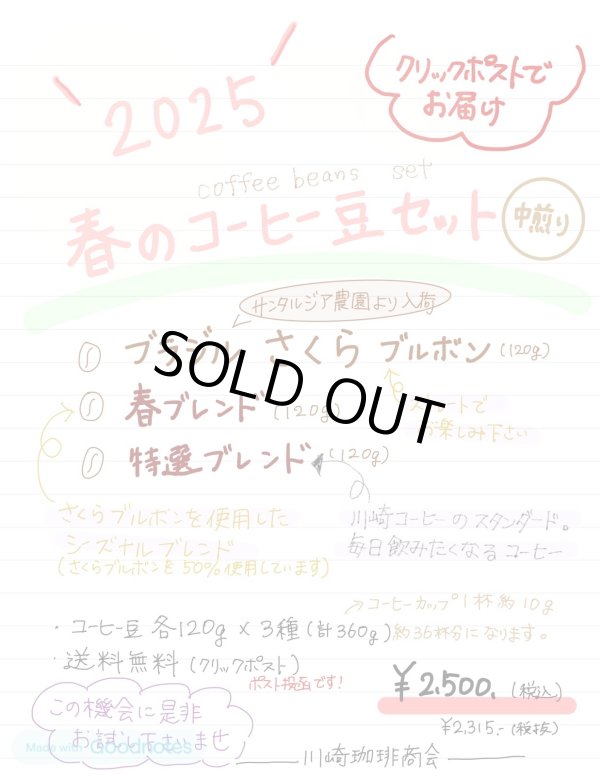 2025
クリックポストで
お届け
coffee beans set
春のコーヒー豆セット
中煎り
サンタルジア農園より入荷
① ブラジル さくら ブルボン (120g)
① 春ブレンド (120g)
トで
お楽しみ下さい
① 特選ブレンド (120g)
SOLD OUT
さくらブルボンを使用した
シーズナルブレンド
(さくらブルボンを50%使用しています)
川崎コーヒーのスタンダード。
毎日飲みたくなるコーヒー
コーヒーカップ1杯約10g
・コーヒー豆 各120g×3種(計360g)約36杯分になります。
・送料無料(クリックポスト)
ポスト投函です!
¥2,500. (税込)
¥2,315.- (税抜)
この機会に是非
お試し下さいませ
Made with Goodnotes
川崎珈琲商会